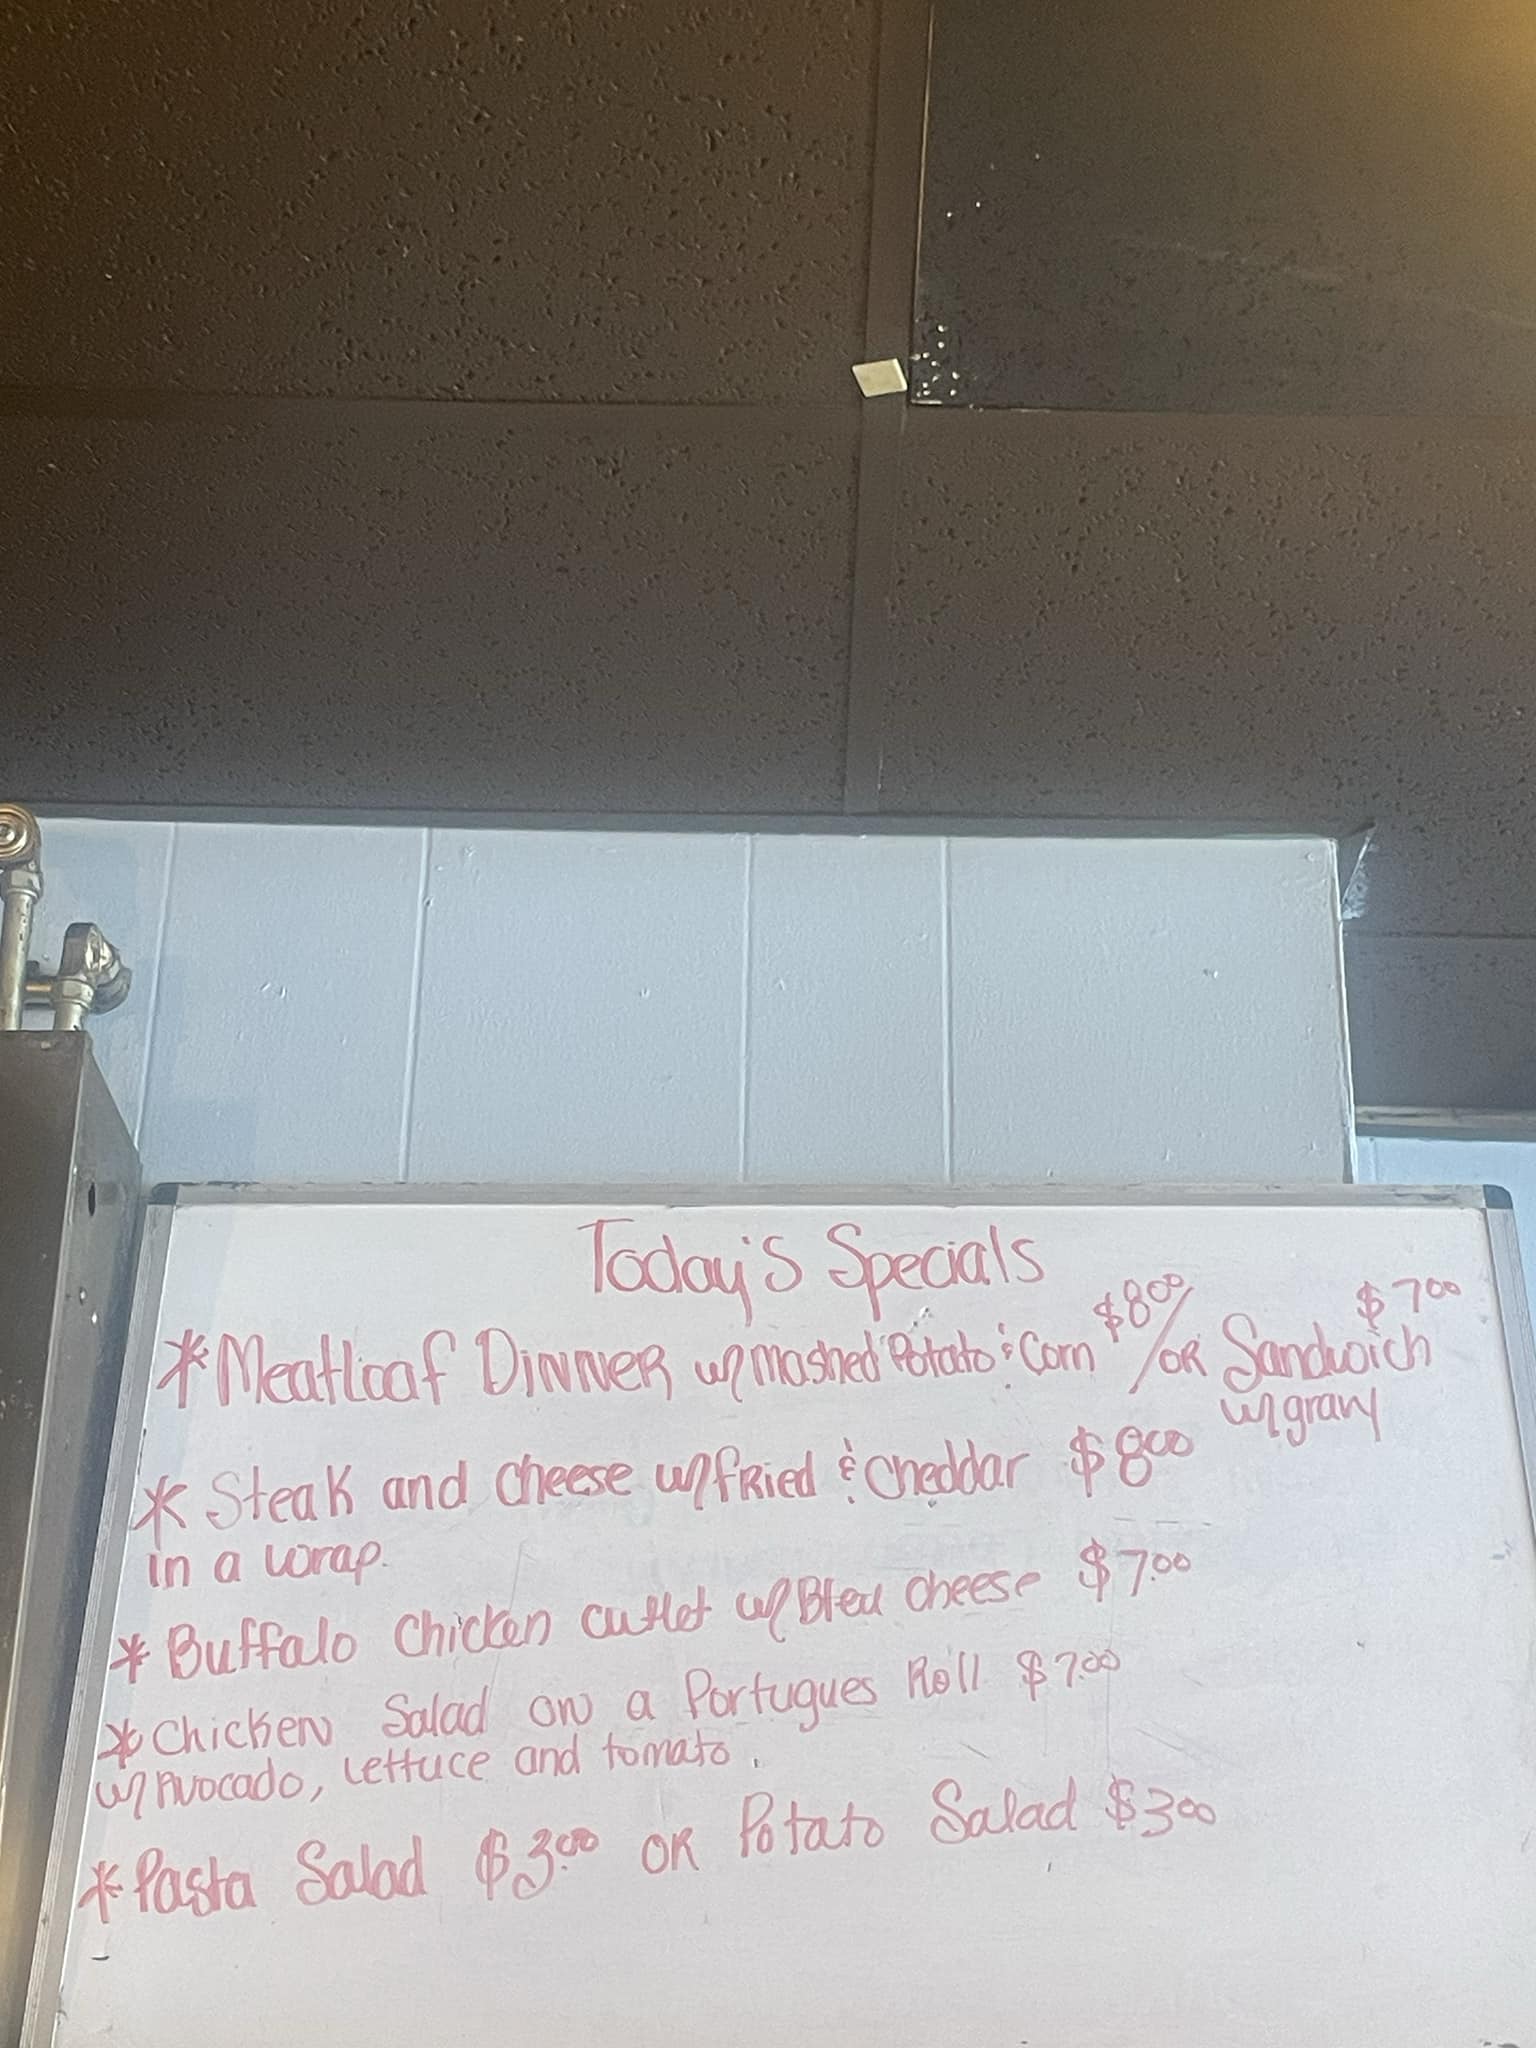 Today's Specials
*Meatloaf Dinner w/mashed Potato & Corn $8.00/or Sandwich $7.00
w/gravy
*Steak and cheese w/fried & cheddar $8.00
in a wrap.
*Buffalo chicken cutlet w/Bleu cheese $7.00
*Chicken Salad on a Portugues Roll $7.00
w/Avocado, Lettuce and tomato.
*Pasta Salad $3.00 or Potato Salad $3.00